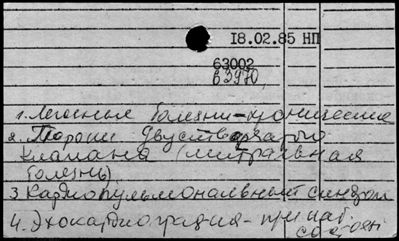 18.02.85 НП
63002
1. Легочные болезни - хронические
2. Пороки двустворчатого
клапана (митральная
болезнь)
3 Кардиопульмональный синдром
4. Эхокардиография - при пат.